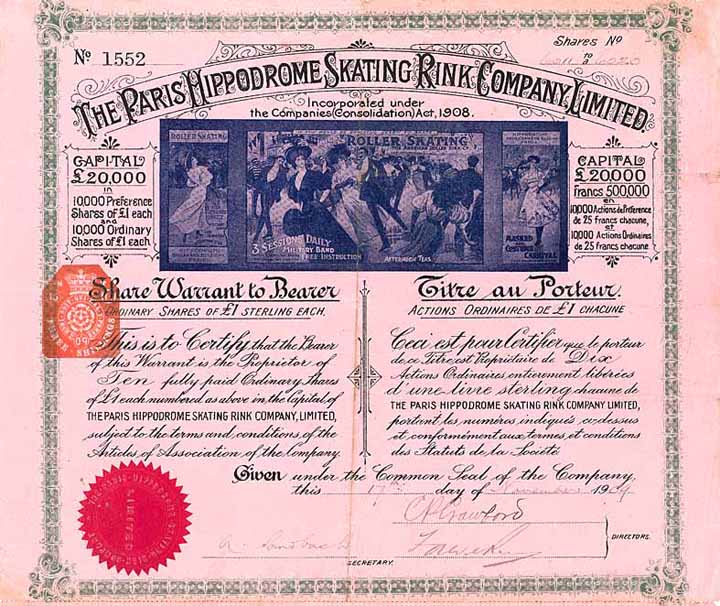 Nº 1552
Shares Nº
to
a
THE PARIS HIPPODROME SKATING RINK COMPANY, LIMITED.
Incorporated under
the Companies (Consolidation) Act, 1908.
CAPITAL
£20,000
in
10,000 Preference
Shares of £1 each
and
10,000 Ordinary
Shares of £1 each
ROLLER SKATING
ROLLER SKATING
3 SESSIONS DAILY
MILITARY BAND
FREE INSTRUCTION
AFTERNOON TEAS
MASKED
COSTUME
CARNIVAL
CAPITAL
£20,000
Francs 500,000
en
10,000 Actions de Préference
de 25 francs chacune,
et
10,000 Actions Ordinaires
de 25 francs chacune
Share Warrant to Bearer
ORDINARY SHARES OF £1 STERLING EACH.
This is to Certify that the Bearer
of this Warrant is the Proprietor of
Ten fully paid Ordinary Shares
of £1 each numbered as above in the capital of
THE PARIS HIPPODROME SKATING RINK COMPANY, LIMITED,
subject to the terms and conditions of the
Articles of Association of the Company.
Titre au Porteur.
ACTIONS ORDINAIRES DE £1 CHACUNE
Ceci est pour Certifier que le porteur
de ce Titre est Propriétaire de Dix
Actions Ordinaires entierement libérées
d'une livre sterling chacune de
THE PARIS HIPPODROME SKATING RINK COMPANY, LIMITED,
portant les numéros indiqués ci-dessus
et conformément aux termes et conditions
des Statuts de la Société
Given under the Common Seal of the Company,
this 17th day of November 1909
DIRECTORS.
SECRETARY.